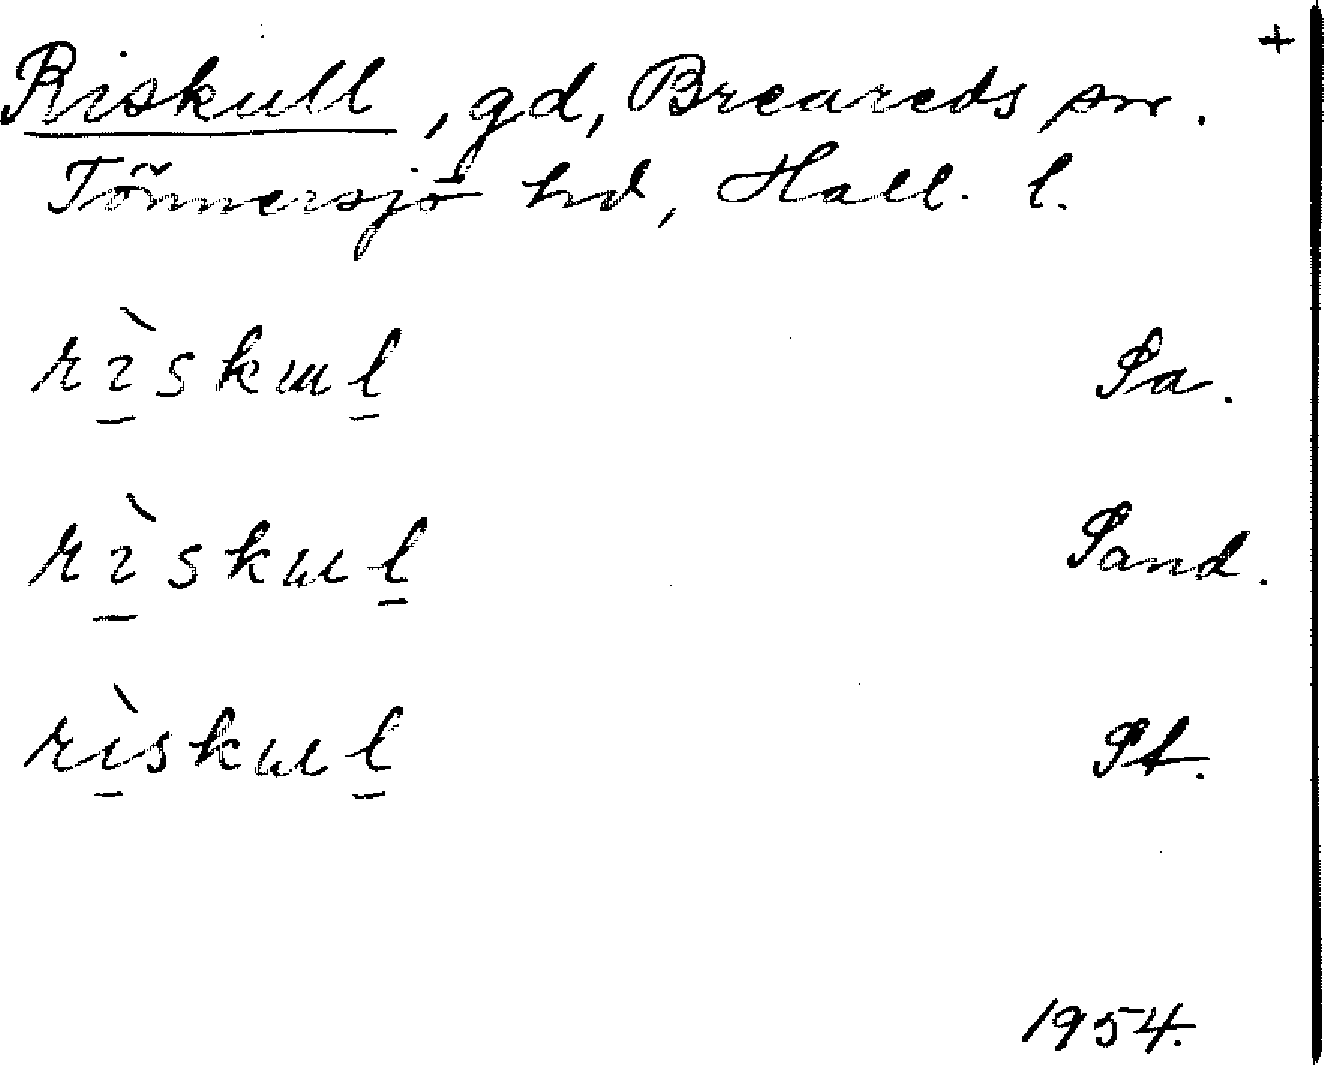 +
Riskull, gd, Breareds sn.
Tönnersjö hd, Hall. l.
rìskul Pa.
rìskul Pand.
rìskul Pt.
1954.